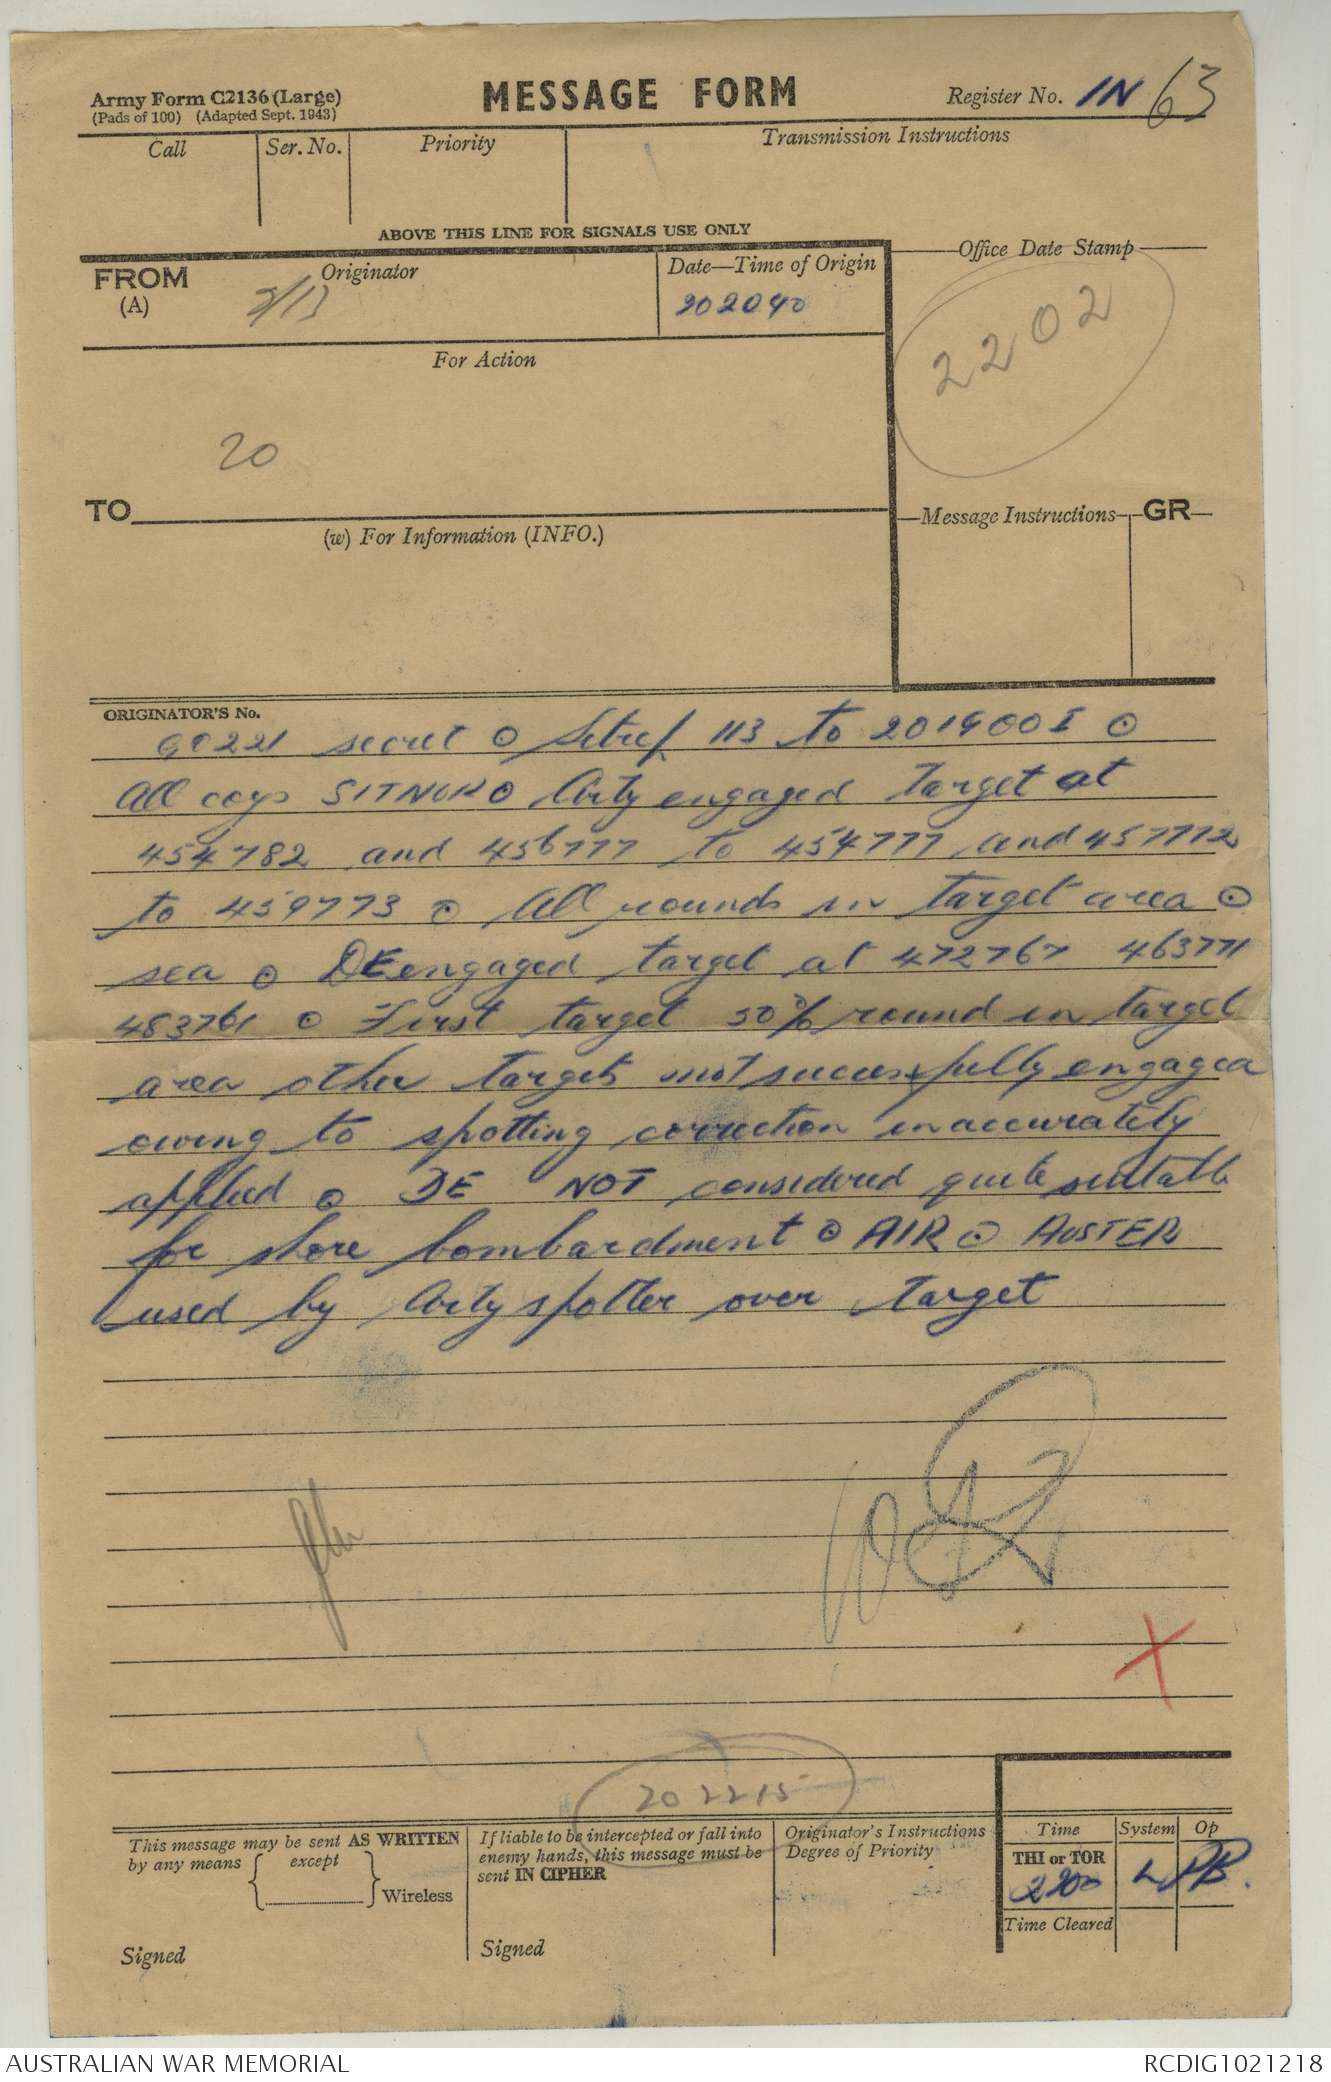 Army Form C2136 (Large)
(Pads of 100) (Adapted Sept. 1943)
MESSAGE FORM
Register No. IN 63
Call
Ser. No.
Priority
Transmission Instructions
ABOVE THIS LINE FOR SIGNALS USE ONLY
FROM
(A)
Originator
2/13
Date—Time of Origin
202040
Office Date Stamp
2202
For Action
20
TO
(w) For Information (INFO.)
Message Instructions
GR
ORIGINATOR'S No.
secret ⊙ Sitrep 113 to 201900I ⊙
All coys SITNOR ⊙ Arty engaged target at
454782 and 456777 to 454777 and 457772
to 459773 ⊙ All rounds in target area ⊙
sea ⊙ DE engaged target at 472767 463771
483761 ⊙ First target 50% round in target
area other targets not successfully engaged
owing to spotting correction inaccurately
applied ⊙ DE NOT considered quite suitable
for shore bombardment ⊙ AIR ⊙ AUSTER
used by Arty spotter over target
202215
This message may be sent AS WRITTEN
by any means { except } Wireless
Signed
If liable to be intercepted or fall into
enemy hands, this message must be
sent IN CIPHER
Signed
Originator's Instructions
Degree of Priority
Time
System
Op
THI or TOR
2200
Time Cleared
AUSTRALIAN WAR MEMORIAL
RCDIG1021218